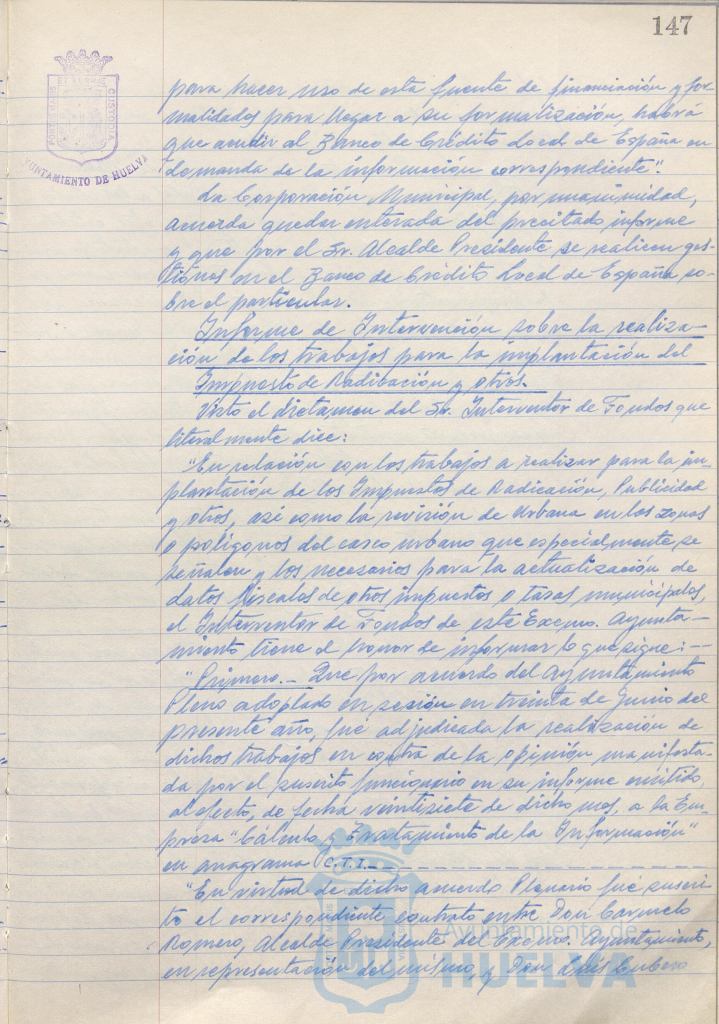 147
PORTUS MARIS ET TERRAE CUSTODIA
AYUNTAMIENTO DE HUELVA
para hacer uso de esta fuente de financiación y for-
malidades para llegar a su formalización, habrá
que acudir al Banco de Crédito Local de España en
demanda de la información correspondiente".
La Corporación Municipal, por unanimidad,
acuerda quedar enterada del precitado informe
y que por el Sr. Alcalde Presidente se realicen ges-
tiones en el Banco de Crédito Local de España so-
bre el particular.
Informe de Intervención sobre la realiza-
ción de los trabajos para la implantación del
Impuesto de Radicación y otros.
Visto el dictamen del Sr. Interventor de Fondos que
literalmente dice:
"En relación con los trabajos a realizar para la im-
plantación de los Impuestos de Radicación, Publicidad
y otros, así como la revisión de Urbana en las zonas
o polígonos del casco urbano que especialmente se
señalen y los necesarios para la actualización de
datos fiscales de otros impuestos o tasas municipales,
el Interventor de Fondos de este Excmo. Ayunta-
miento tiene el honor de informar lo que sigue: --
"Primero.- Que por acuerdo del Ayuntamiento
Pleno adoptado en sesión en treinta de Junio del
presente año, fué adjudicada la realización de
dichos trabajos en contra de la opinión manifesta-
da por el suscrito funcionario en su informe emitido,
al efecto, de fecha veintisiete de dicho mes, a la Em-
presa "Cálculo y Tratamiento de la Información"
en anagrama C.T.I. - - - - - - - - - - - -
"En virtud de dicho acuerdo Plenario fué suscri-
to el correspondiente contrato entre Don Carmelo
Romero, Alcalde Presidente del Excmo. Ayuntamiento,
en representación del mismo, y Don Luis Cubero
Ayuntamiento de
HUELVA